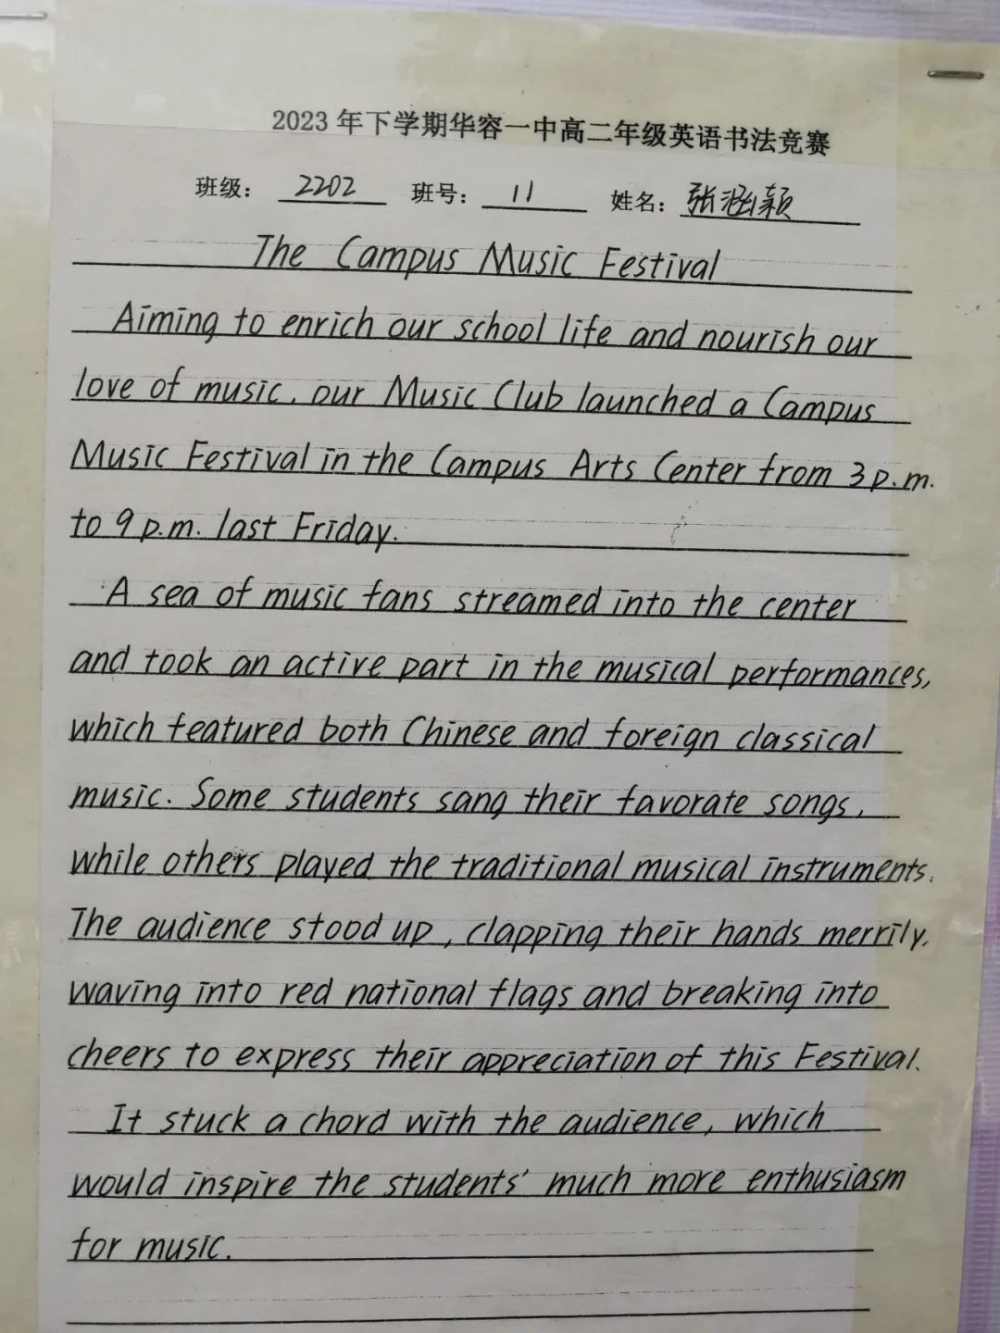 2023年下学期华容一中高二年级英语书法竞赛
班级： 2202 班号： 11 姓名： 张涵颖
The Campus Music Festival
Aiming to enrich our school life and nourish our
love of music, our Music Club launched a Campus
Music Festival in the Campus Arts Center from 3 p.m.
to 9 p.m. last Friday.
A sea of music fans streamed into the center
and took an active part in the musical performances,
which featured both Chinese and foreign classical
music. Some students sang their favorate songs,
while others played the traditional musical instruments.
The audience stood up, clapping their hands merrily,
waving into red national flags and breaking into
cheers to express their appreciation of this Festival.
It stuck a chord with the audience, which
would inspire the students' much more enthusiasm
for music.